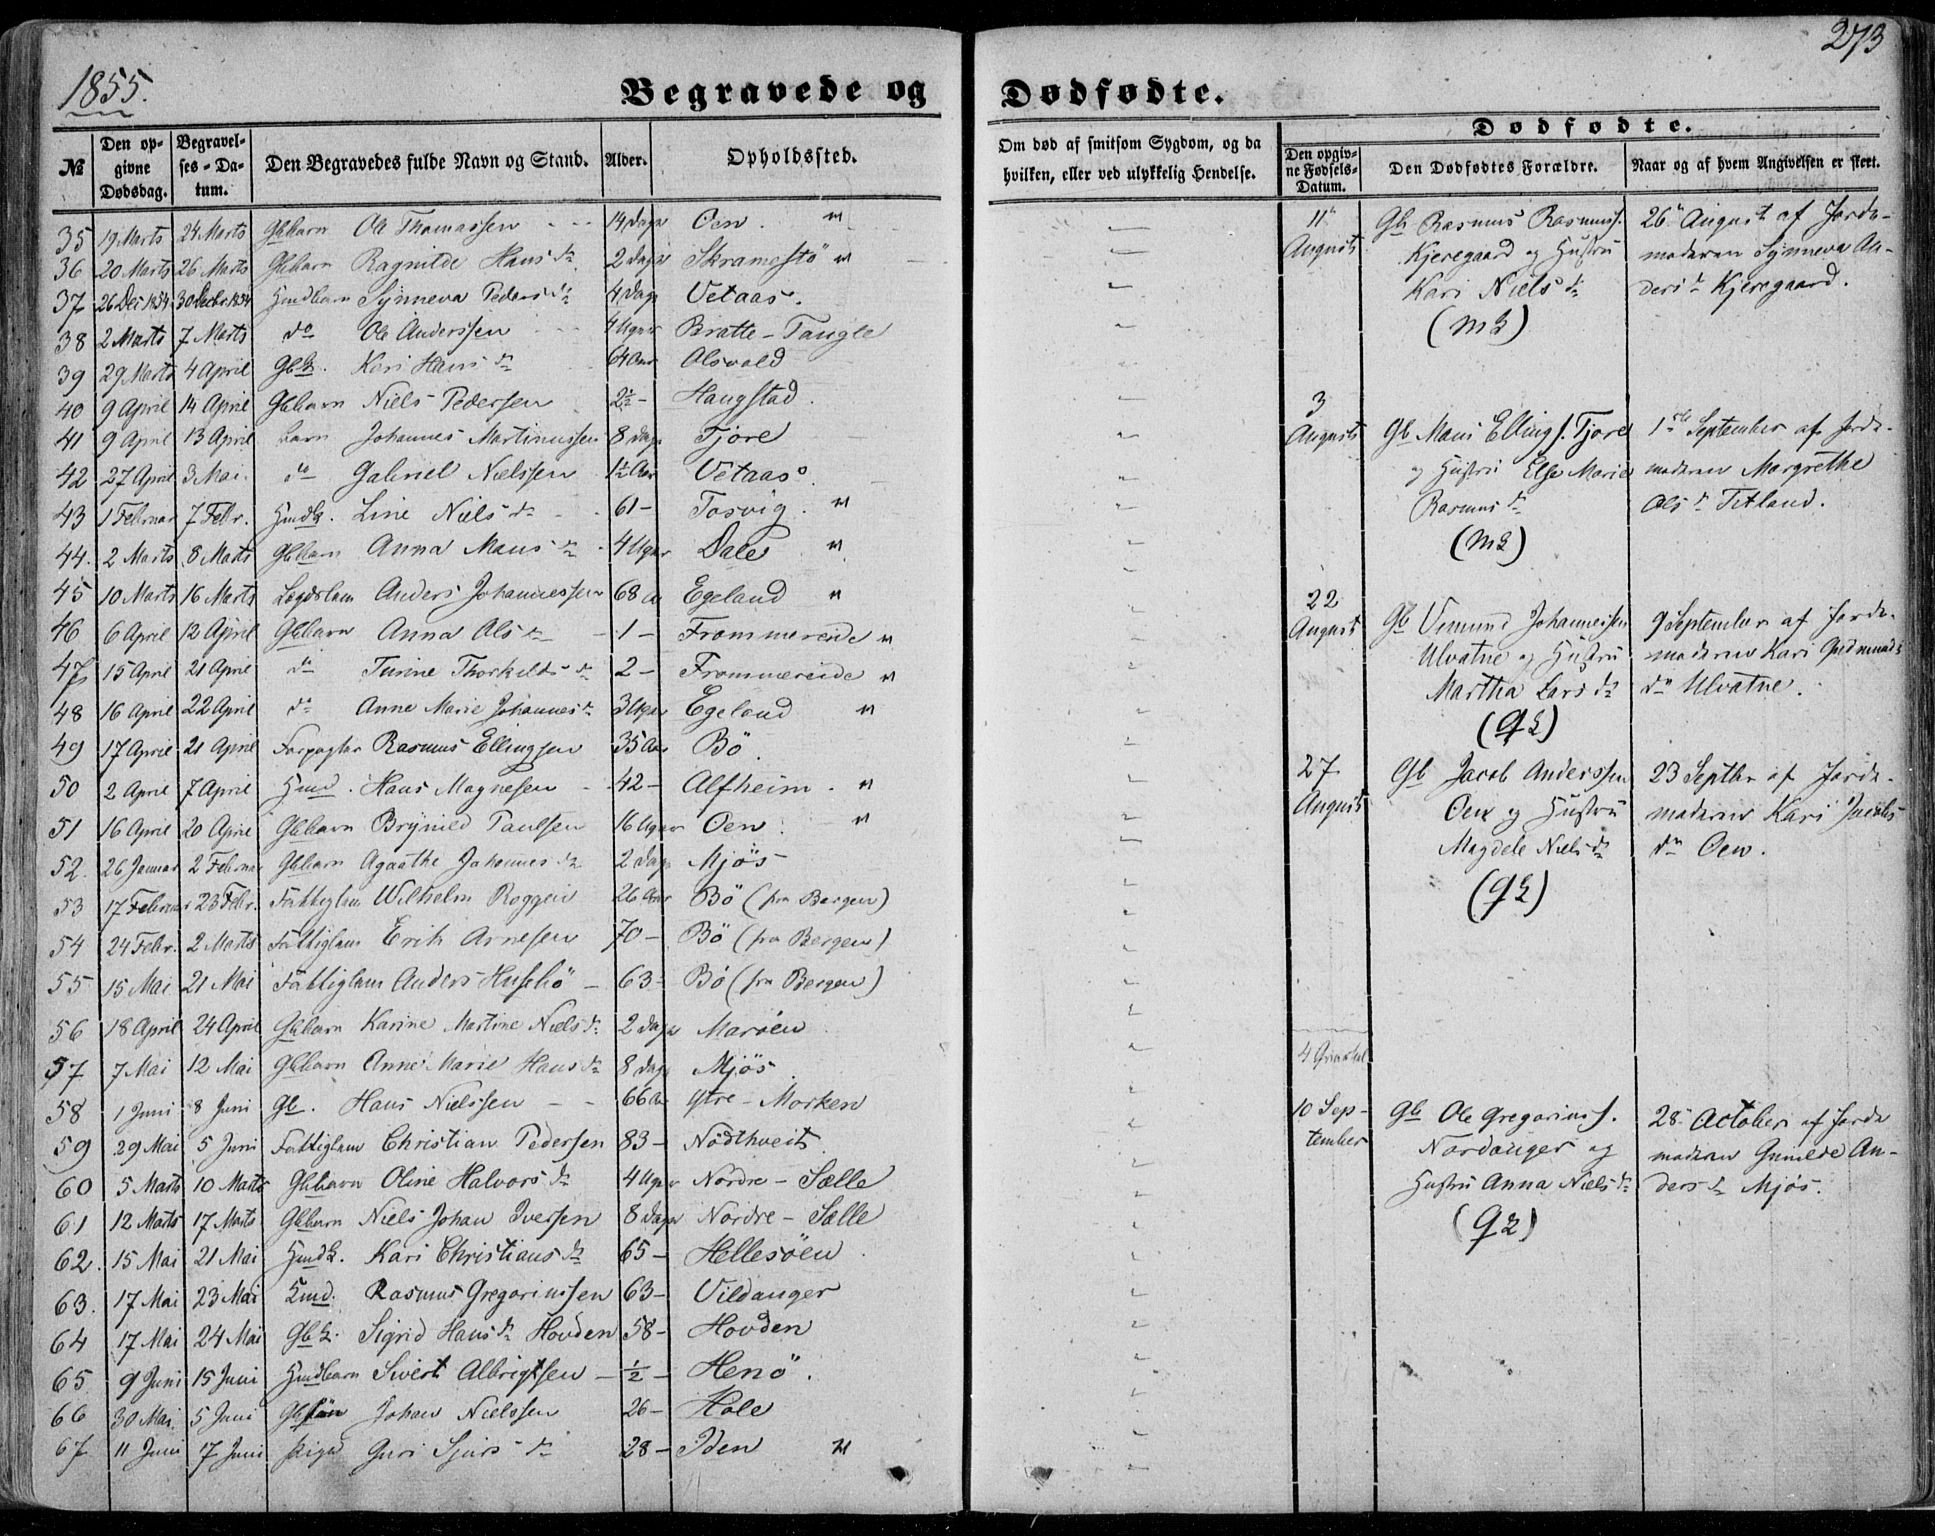 1855.
273
Begravede og Dødfødte.
№
Den opgivne Dødsdag.
Begravelses-Datum.
Den Begravedes fulde Navn og Stand.
Alder.
Opholdssted.
Om død af smitsom Sygdom, og da hvilken, eller ved ulykkelig Hendelse.
Dødfødte.
Den opgivne Fødsels-Datum.
Den Dødfødtes Forældre.
Naar og af hvem Angivelsen er skeet.
35 19 Marts 24 Marts Gbbarn Ole Thomassen 14 Dage Oen "
36 20 Marts 26 Marts Gbbarn Ragnilde Hans dr 2 Dage Skramestö "
37 26 Dec 1854 30 Decbr. 1854 Hmdbarn Synneva Peders dr 4 Dage Vetaas.
38 2 Marts 7 Marts do Ole Anderssen 4 Uger Bratte-Tangle
39 29 Marts 4 April Gbk. Kari Hans dr 64 Aar Alsvold
40 9 April 14 April Gbbarn Niels Pedersen 2½ - Haugstad.
41 9 April 13 April barn Johannes Martinussen 8 Dage Tjore
42 27 April 3 Mai do Gabriel Nielssen 1½ Aar Vetaas.
43 1 Februar 7 Febr. Hmdk. Line Niels dr 61 - Tosvig. "
44. 2 Marts 8 Marts Gbbarn Anna Mons dr 4 Uger Dale "
45 10 Marts 16 Marts Legdslem Anders Johannessen 68 Aar Egeland "
46 6 April 12 April Gbbarn Anna Ols dr 1 - Frommereide "
47 15 April 21 April do Turine Thorkilds dr 2 - Frommereide "
48 16 April 22 April do Anne Marie Johannes dr 3 Uger Egeland "
49 17 April 21 April Forpagter Rasmus Ellingsen 35 Aar Bö.
50 2 April 7 April Hmd. Hans Magnesen 42 - Alfheim. "
51 16 April 20 April Gbbarn Brynild Paulsen 16 Uger Oen. "
52. 26 Januar 2 Februar Gbbarn Agaathe Johannes dr 2 Dage Mjös
53 17 Februar 23 Febr. Fattiglem Wilhelm Roggen 26 Aar Bö (fra Bergen)
54 24 Febr. 2 Marts Fattiglem Erik Arnesen 70 - Bö (fra Bergen)
55 15 Mai 21 Mai Fattiglem Anders Husebö - 63 - Bö (fra Bergen)
56 18 April 24 April Gbbarn Karine Martine Niels dr 2 Dage Maröen
57 7 Mai 12 Mai Gbbarn Anne Marie Hans dr 8 Dage Mjös
58 1 Juni 8 Juni Gb. Hans Nielssen 66 Aar Ytre-Morken
59 29 Mai 5 Juni Fattiglem Christian Pedersen 83 - Nödthveit
60 5 Marts 10 Marts Gbbarn Oline Halvors dr 4 Uger Nordre-Sælle
61 12 Marts 17 Marts Gbbarn Niels Johan Iversen 8 Dage Nordre-Sælle
62. 15 Mai 21 Mai Hmdk. Kari Christians dr 65 - Hellesöen
63. 17 Mai 23 Mai Hmd. Rasmus Gregoriussen 63 - Vildanger
64 17 Mai 24 Mai Gbk. Sigrid Hans dr Hovden 58 - Hovden
65 9 Juni 15 Juni Hmdbarn Sivert Albrigtsen - ½ - Henö.
66 30 Mai 5 Juni Gbsön Johan Nielssen 26 - Hole
67 11 Juni 17 Juni Pige Guri Sjurs dr 28 - Iden "
11te August
Gb Rasmus Rasmuss.
Kjeregaard og Hustru
Kari Niels dr
(mk)
26 August af Jorde-
moderen Synneva An-
ders dr Kjeregaard.
3 August
Gb Mons Ellings. Tjore
og Hustru Else Marie
Rasmus dr
(mk)
1ste September af Jorde-
moderen Margrethe
Ols dr Tetland.
22 August
Gb Vemund Johannessen
Ulvatne og Hustru
Martha Lars dr
(qk)
9 September af Jorde-
moderen Kari Gudmunds
dr Ulvatne.
27 August
Gb Jacob Anderssen
Oen og Hustru
Magdele Niels dr
(qk)
23 Septbr af Jorde-
moderen Kari Jacobs
dr Oen.
4 Qvartal
10 September
Gb Ole Gregorius s.
Nordanger og
Hustru Anna Niels dr
(qk)
28 October af Jorde
moderen Gunilde An-
ders dr Mjös.